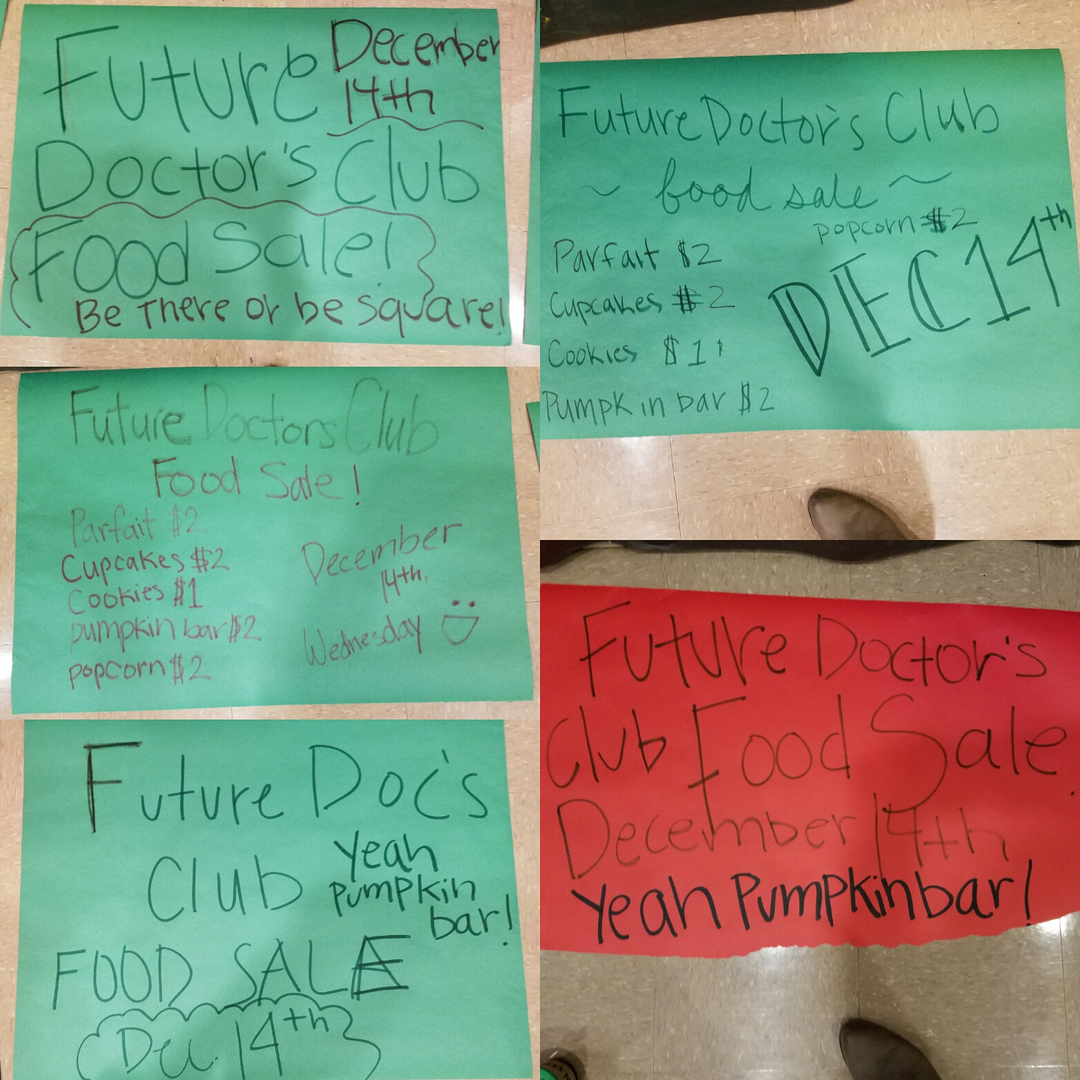 Future
December
14th
Doctor's Club
Food Sale!
Be There or be square!
Future Doctor's Club
~ food sale ~
popcorn $2
Parfait $2
Cupcakes $2
Cookies $1
Pumpkin bar $2
DEC 14th
Future Doctors Club
Food Sale!
Parfait $2
Cupcakes $2
Cookies $1
pumpkin bar $2
popcorn $2
December
14th,
Wednesday
Future Doctor's
Club Food Sale.
December 14th
Yeah Pumpkin bar!
Future Doc's
Club
Yeah
Pumpkin
bar!
FOOD SALE
Dec. 14th